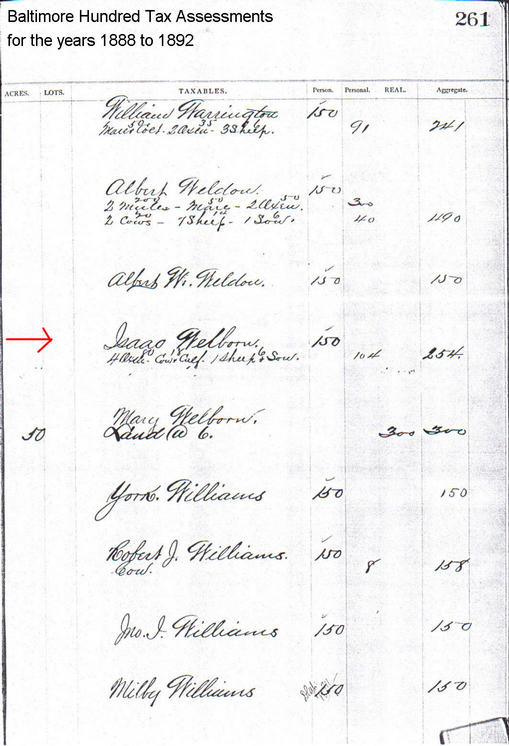 Baltimore Hundred Tax Assessments
for the years 1888 to 1892
261
ACRES. LOTS. TAXABLES. Person. Personal. REAL. Aggregate.
William Warrington 150
2 Oxen - 3 Sheep. 91 241
Albert Weldon. 150
2 Mules - Mare - 2 Oxen. 300
2 Cows - 7 Sheep - 1 Sow. 40 490
Albert W. Weldon. 150 150
Isaac Welborn. 150
4 Oxen - Cow & Calf. 1 Sheep & Sow. 104 254
Mary Welborn.
50 Land @ 6. 300 300
York. Williams 150 150
Robert J. Williams. 150
Cow. 8 158
Jno. I. Williams 150 150
Milby Williams 150 150